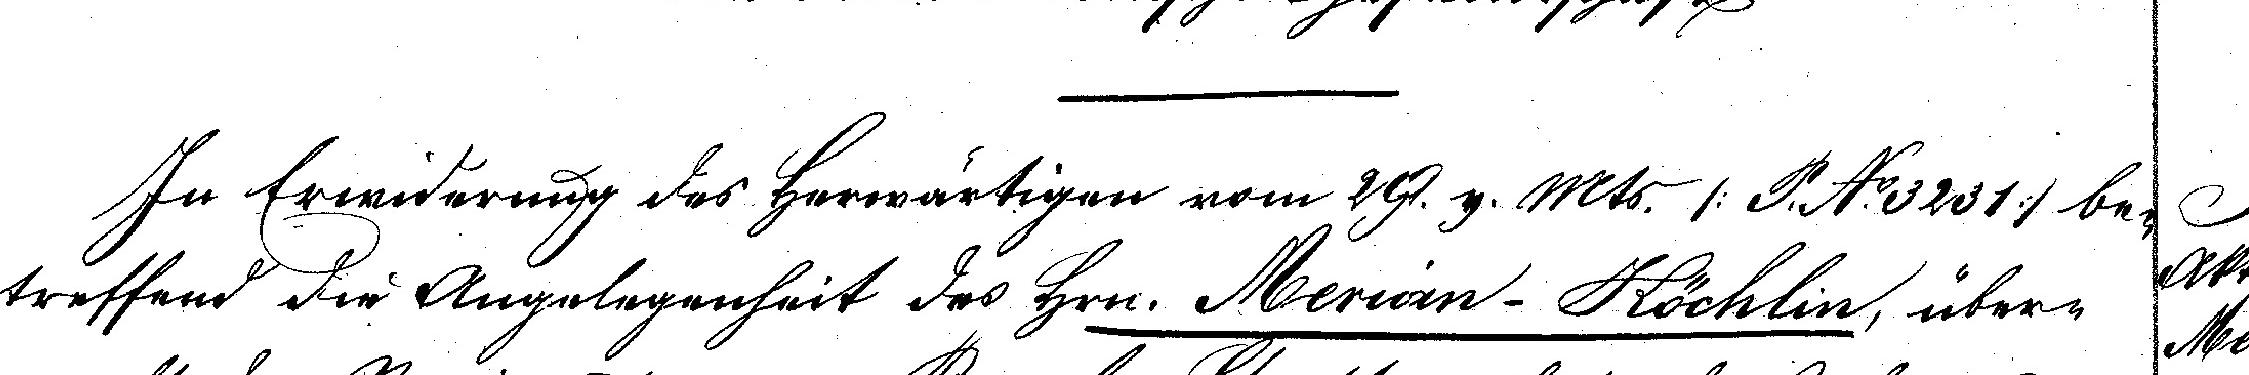 In Erwiderung des Herwärtigen vom 29. v. Mts. /: P. No. 3231 :/ be-
treffend die Angelegenheit des Hrn. Merian-Köchlin, über-